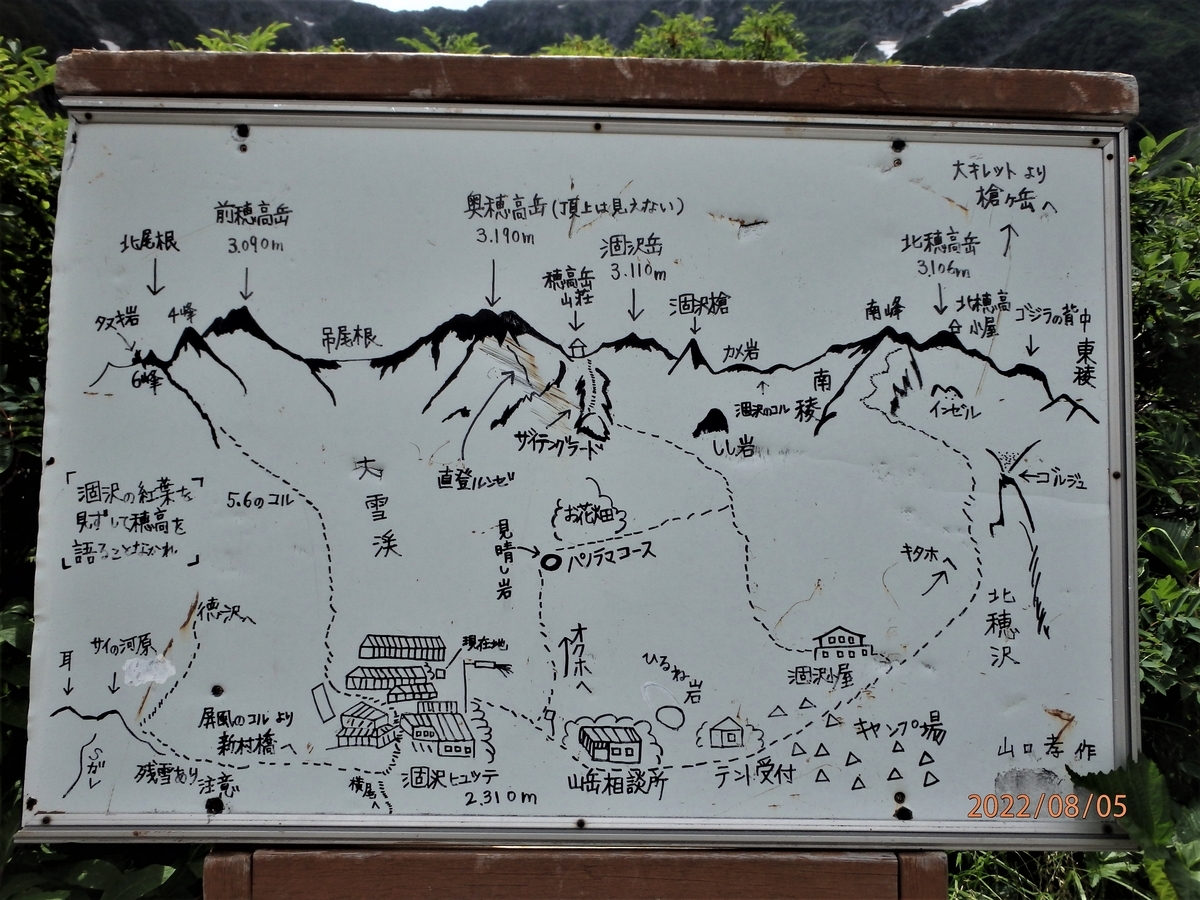 大キレットより
槍ヶ岳へ
前穂高岳
3.090m
奥穂高岳(頂上は見えない)
3.190m
北尾根
涸沢岳
3.110m
北穂高岳
3.106m
穂高岳
山荘
涸沢槍
南峰
北穂高
小屋
ゴジラの背中
東稜
タヌキ岩
4峰
6峰
吊尾根
カメ岩
涸沢のコル
南稜
インゼル
しし岩
ザイテングラード
直登ルンゼ
ゴルジュ
大雪渓
5.6のコル
「涸沢の紅葉を
見ずして穂高を
語ることなかれ」
お花畑
見晴し岩
パノラマコース
キタホへ
北穂沢
徳沢へ
サイの河原
耳
現在地
オクホへ
ひるね岩
涸沢小屋
屏風のコルより
新村橋へ
キャンプ場
山口孝作
Sガレ
残雪あり注意
横尾へ
涸沢ヒュッテ
2.310m
山岳相談所
テント受付
2022/08/05